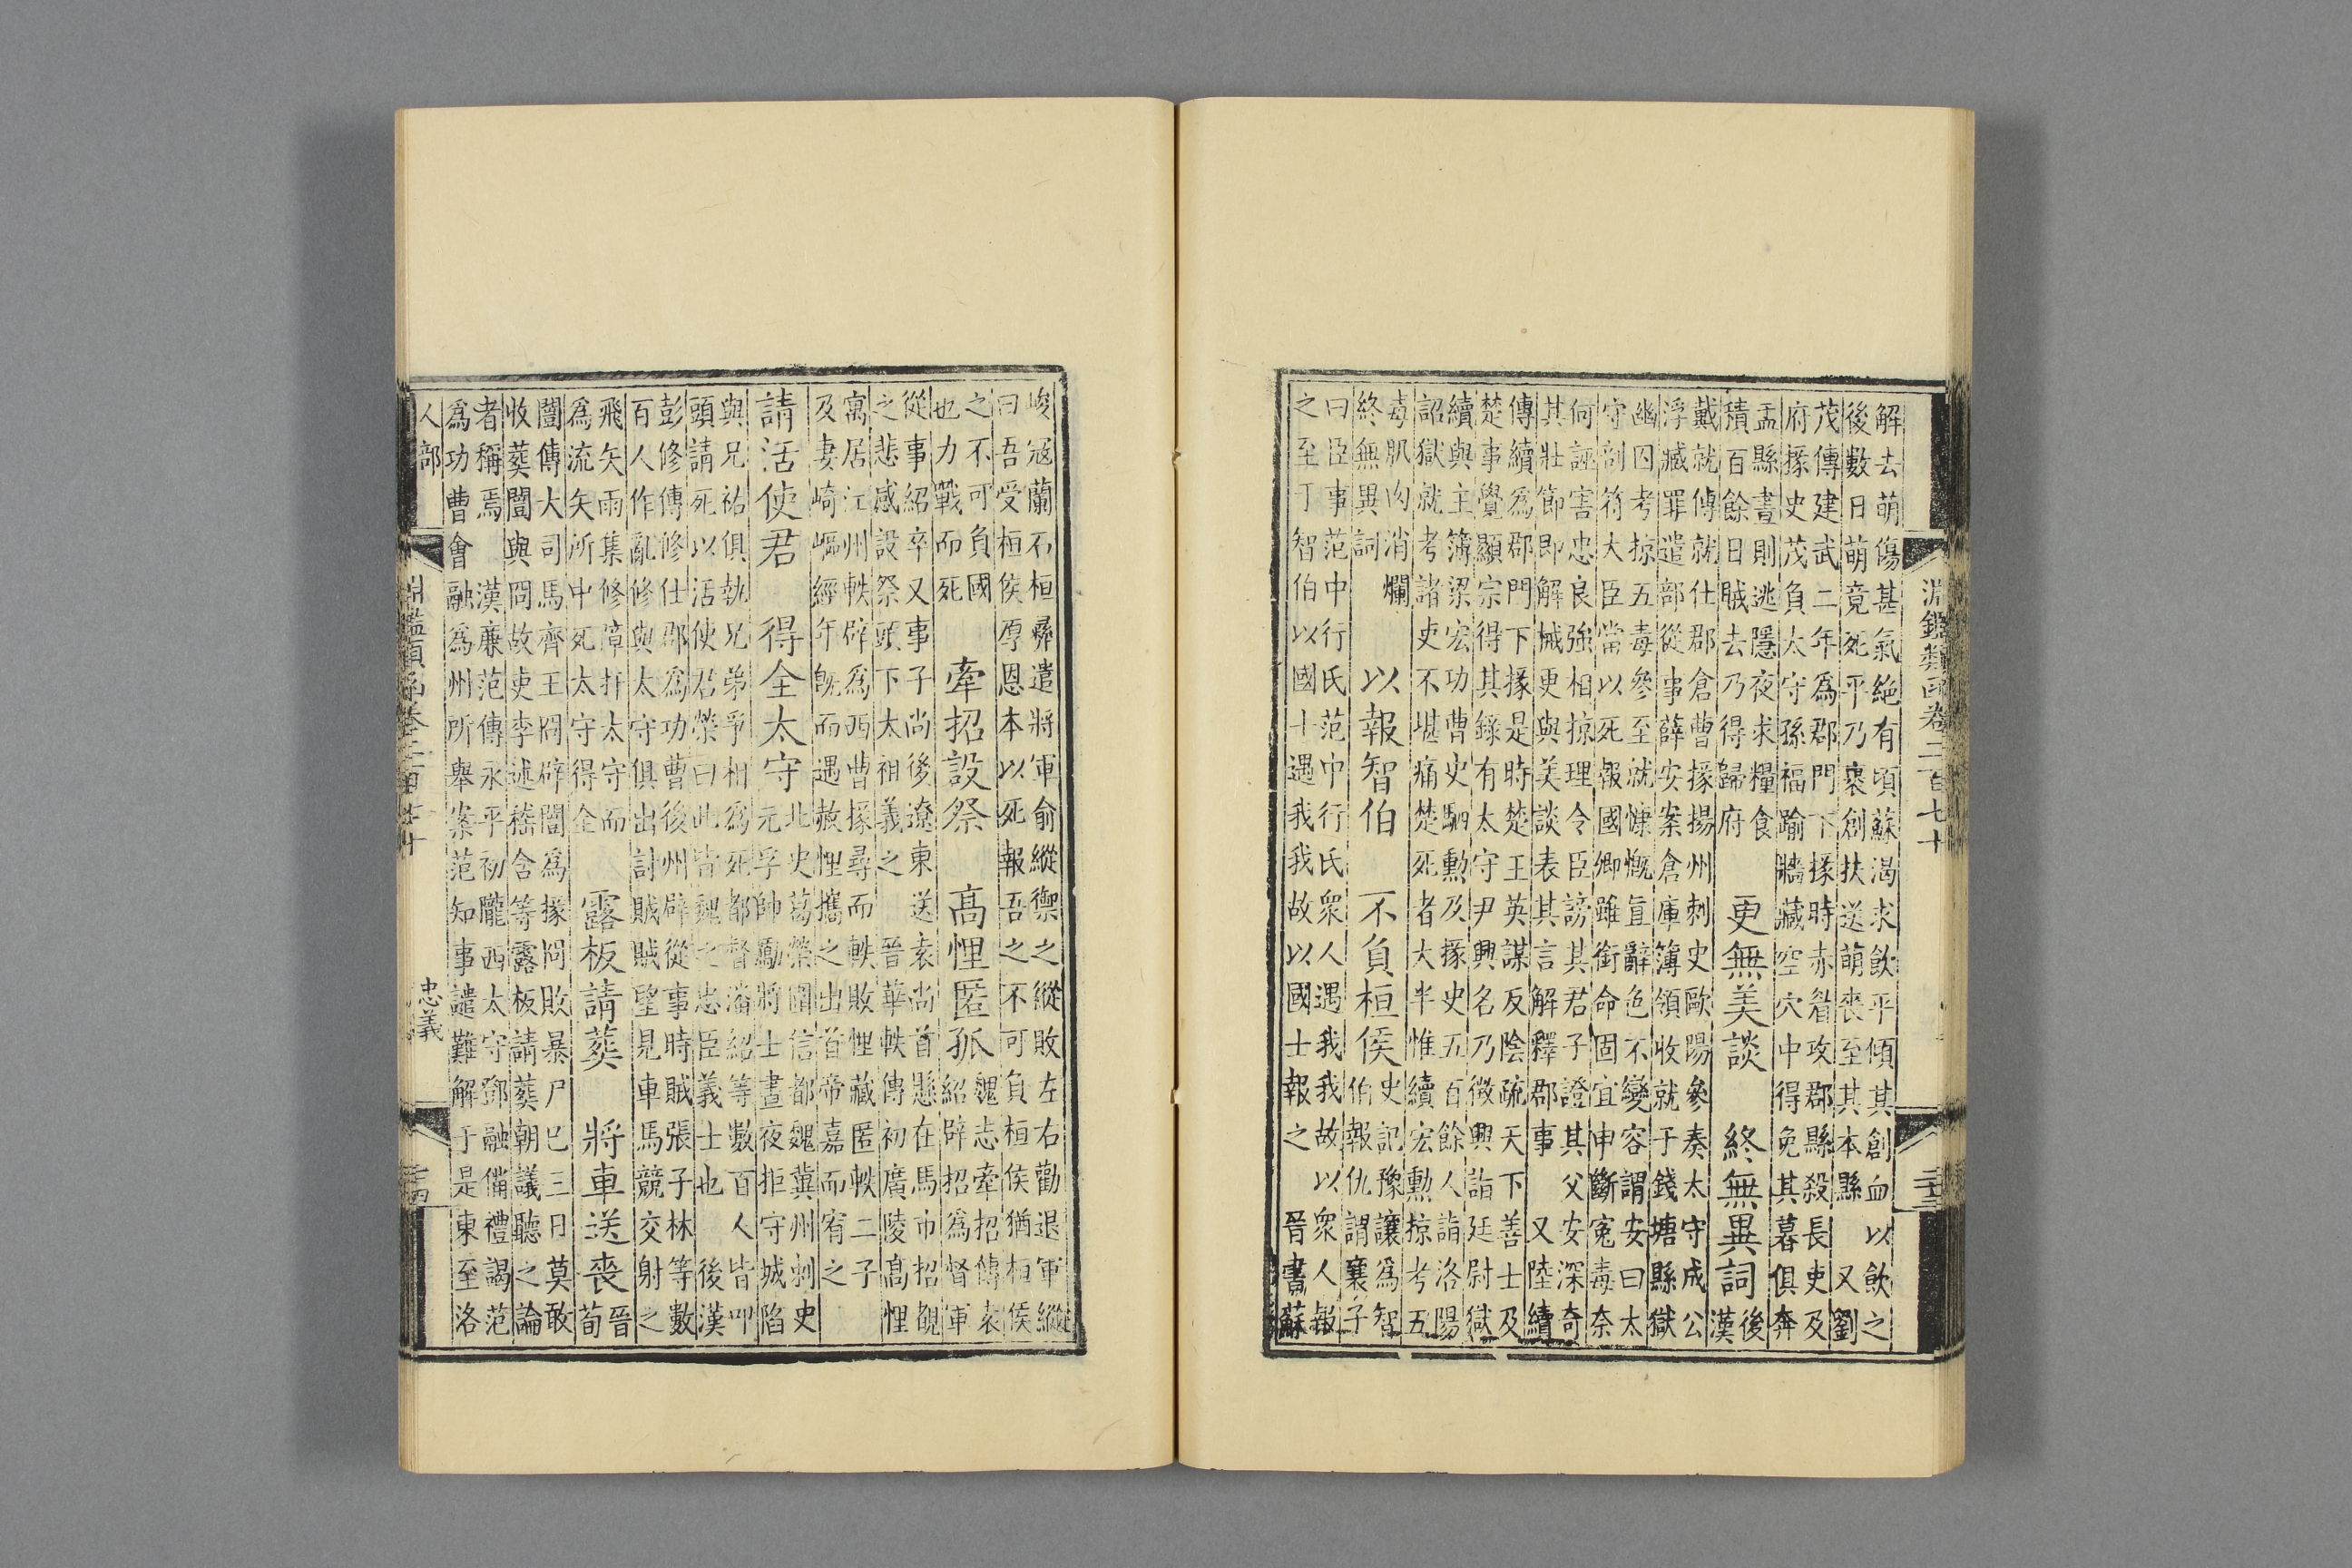 淵鑑類函卷二百七十
二十三
解去萌傷甚氣絕有頃蘇渴求飲平傾其創血以飲之
後數日萌竟死平乃裹創扶送萌喪至其本縣　又劉
茂傳建武二年爲郡門下掾時赤眉攻郡縣殺長吏及
府掾史茂負太守孫福踰牆藏空穴中得免其暮俱奔
盂縣晝則逃隱夜求糧食
積百餘日賊去乃得歸府
更無美談　終無異詞
後
漢
戴就傳就仕郡倉曹掾揚州刺史歐陽參奏太守成公
浮臧罪遣部從事薛安案倉庫簿領收就于錢塘縣獄
幽囚考掠五毒參至就慷慨直辭色不變容謂安曰太
守剖符大臣當以死報國卿雖銜命固宜申斷冤毒奈
何誣害忠良強相掠理令臣謗其君子證其父　安深奇
其壯節即解械更與美談表其言解釋郡事　又陸續
傳續爲郡門下掾是時楚王英謀反陰疏天下善士及
楚事覺顯宗得其錄有太守尹興名乃徵興詣廷尉獄
續與主簿梁宏功曹史駟勳及掾史五百餘人詣洛陽
詔獄就考諸吏不堪痛楚死者大半惟續宏勳掠考五
毒肌肉消爛
終無異詞
以報智伯　不負桓侯
史記豫讓爲智
伯報仇謂襄子
曰臣事范中行氏范中行氏衆人遇我我故以衆人報
之至于智伯以國士遇我我故以國士報之　晉書蘇
峻冦蘭石桓彝遣將軍俞縱禦之縱敗左右勸退軍縱
曰吾受桓侯厚恩本以死報吾之不可負桓侯猶桓侯
之不可負國
也力戰而死
牽招設祭　高悝匿孤
魏志牽招傳袁
紹辟招爲督軍
從事紹卒又事子尚後遼東送袁尚首懸在馬市招覩
之悲感設祭頭下太祖義之　晉華軼傳初廣陵高悝
寓居江州軼辟爲西曹掾尋而軼敗悝藏匿軼二子
及妻崎嶇經年旣而遇赦悝攜之出首帝嘉而宥之
請活使君　得全太守
北史葛榮圍信都魏冀州刺史
元孚帥勵將士晝夜拒守城陷
與兄祐俱執兄弟爭相爲死都督潘紹等數百人皆叩
頭請死以活使君榮曰此皆魏之忠臣義士也　後漢
彭修傳修仕郡爲功曹後州辟從事時賊張子林等數
百人作亂修與太守俱出討賊賊望見車馬競交射之
飛矢雨集修障扞太守而
爲流矢所中死太守得全
露板請葬　將車送喪
晉
荀
闓傳大司馬齊王冏辟闓爲掾冏敗暴尸已三日莫敢
收葬闓與冏故吏李述嵇含等露板請葬朝議聽之論
者稱焉　漢廉范傳永平初隴西太守鄧融備禮謁范
爲功曹會融爲州所舉案范知事譴難解于是東至洛
人部
淵鑑類函卷二百七十
忠義
二十四